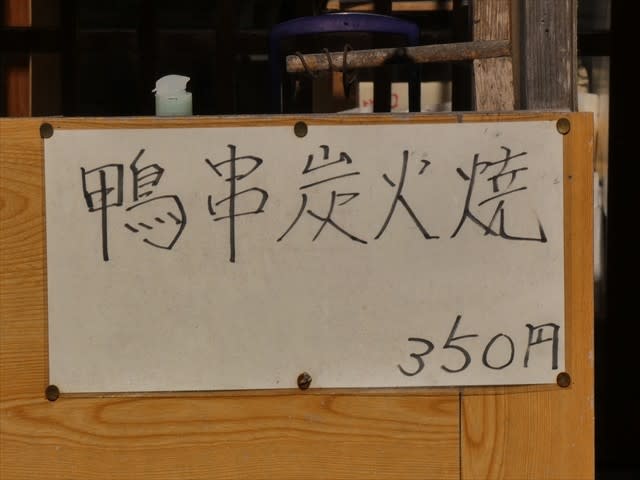 鴨串炭火焼
350円